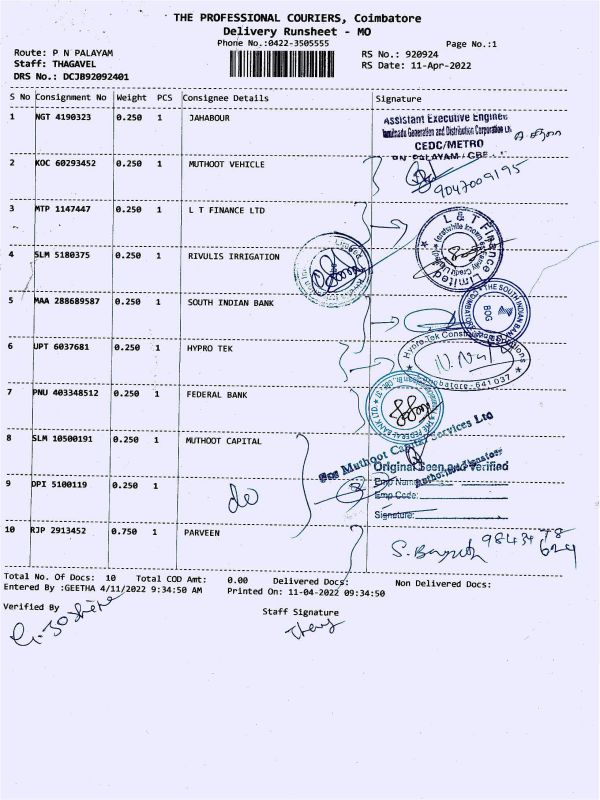 THE PROFESSIONAL COURIERS, Coimbatore
Delivery Runsheet - MO
Phone No.:0422-3505555
Page No.:1
Route: P N PALAYAM
RS No.: 920924
Staff: THAGAVEL
RS Date: 11-Apr-2022
DRS No.: DCJB92092401
S No Consignment No Weight PCS Consignee Details Signature
1 NGT 4190323 0.250 1 JAHABOUR
Assistant Executive Engineer
Tamilnadu Generation and Distribution Corporation Ltd
CEDC/METRO
PN PALAYAM / CBE
2 KOC 60293452 0.250 1 MUTHOOT VEHICLE
9047009195
3 MTP 1147447 0.250 1 L T FINANCE LTD
L & T Finance Limited
4 SLM 5180375 0.250 1 RIVULIS IRRIGATION
5 MAA 288689587 0.250 1 SOUTH INDIAN BANK
THE SOUTH INDIAN BANK
BOG
6 UPT 6037681 0.250 1 HYPRO TEK
Hypro Tek
Coimbatore - 641 037
7 PNU 403348512 0.250 1 FEDERAL BANK
THE FEDERAL BANK LTD.
8 SLM 10500191 0.250 1 MUTHOOT CAPITAL
For Muthoot Capital Services Ltd
Authorised Signatory
Original Seen and Verified
Emp Name:
9 DPI 5100119 0.250 1
do
Emp Code:
Signature:
10 RJP 2913452 0.750 1 PARVEEN
98434 78
624
Total No. Of Docs: 10 Total COD Amt: 0.00 Delivered Docs: Non Delivered Docs:
Entered By :GEETHA 4/11/2022 9:34:50 AM Printed On: 11-04-2022 09:34:50
Verified By
Staff Signature